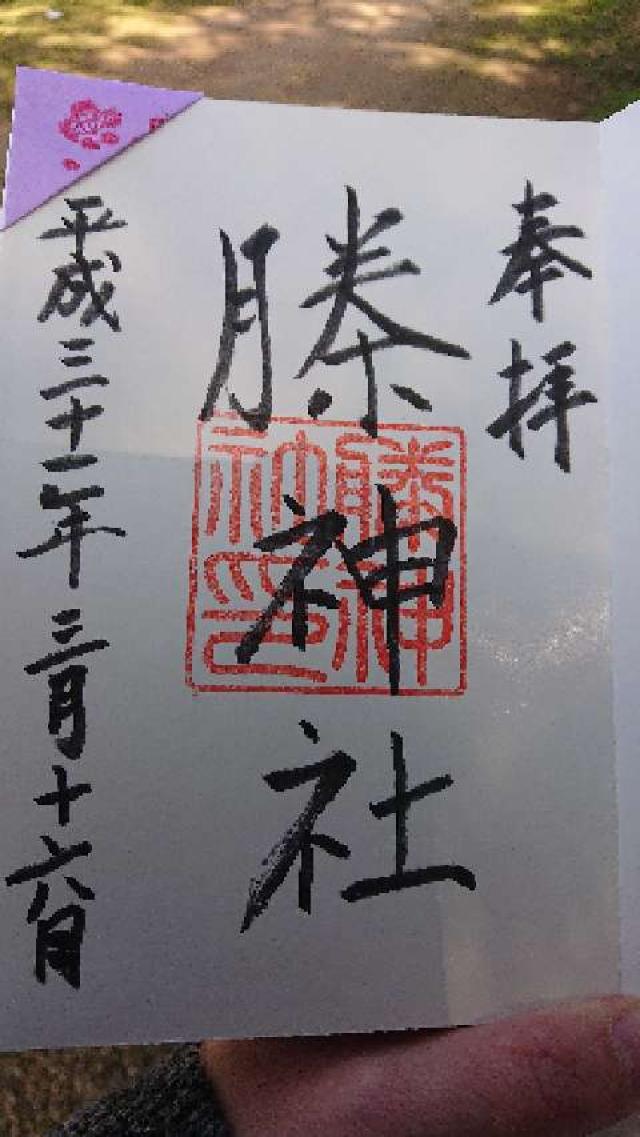 奉拝
滕神社
滕神
社印
平成三十一年三月十六日